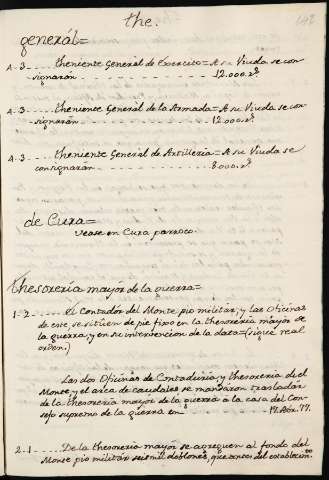 the. 142
general=
4-3 theniente General de Exercito= A su Viuda se con-
signarán 12.000.rs
4-3 theniente General de la Armada= A su Viuda se con-
signarán 12.000.rs
4-3 theniente General de Artilleria= A su Viuda se
consignarán 8.000.rs
de Cura=
vease en Cura parroco.
Thesoreria mayor de la guerra=
1-2 El Contador del Monte pio militar, y las Oficinas
de este, se situen de pie fixo en la thesoreria mayor de
la guerra, y en su intervencion de la data= (sigue real
orden.)
Las dos Oficinas de Contaduria, y thesoreria de el
Monte, y el arca de caudales se mandaron trasladar
de la thesoreria mayor de la guerra a la casa del Con-
sejo supremo de la guerra en 17. Abr. 77.
2-1 De la thesoreria mayor se agreguen al fondo del
Monte pio militar seis mil doblones, que antes del establecim.to